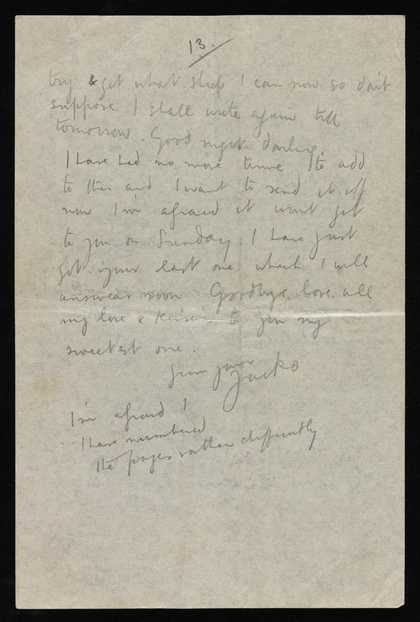 13.
try & get what sleep I can now so don't
suppose I shall write again till
tomorrow. Good night darling.
I have had no more time to add
to this and I want to send it off
now I'm afraid it wont get
to you on Sunday. I have just
got your last one which I will
answear soon Goodbye love all
my love & kisses to you my
sweetest one.
from your
Jacko
I'm afraid I
have numbered
the pages rather differently